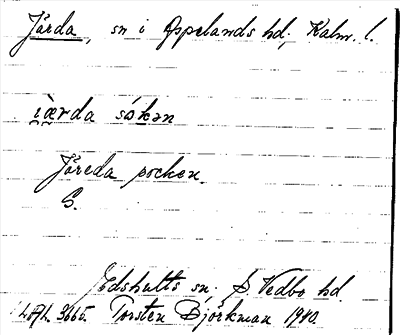 Järda, sn i Aspelands hd, Kalm. l.
i̯ærda sókən
Järeda socken.
S.
Edshults sn. S Vedbo hd.
Torsten Björkman 1910.